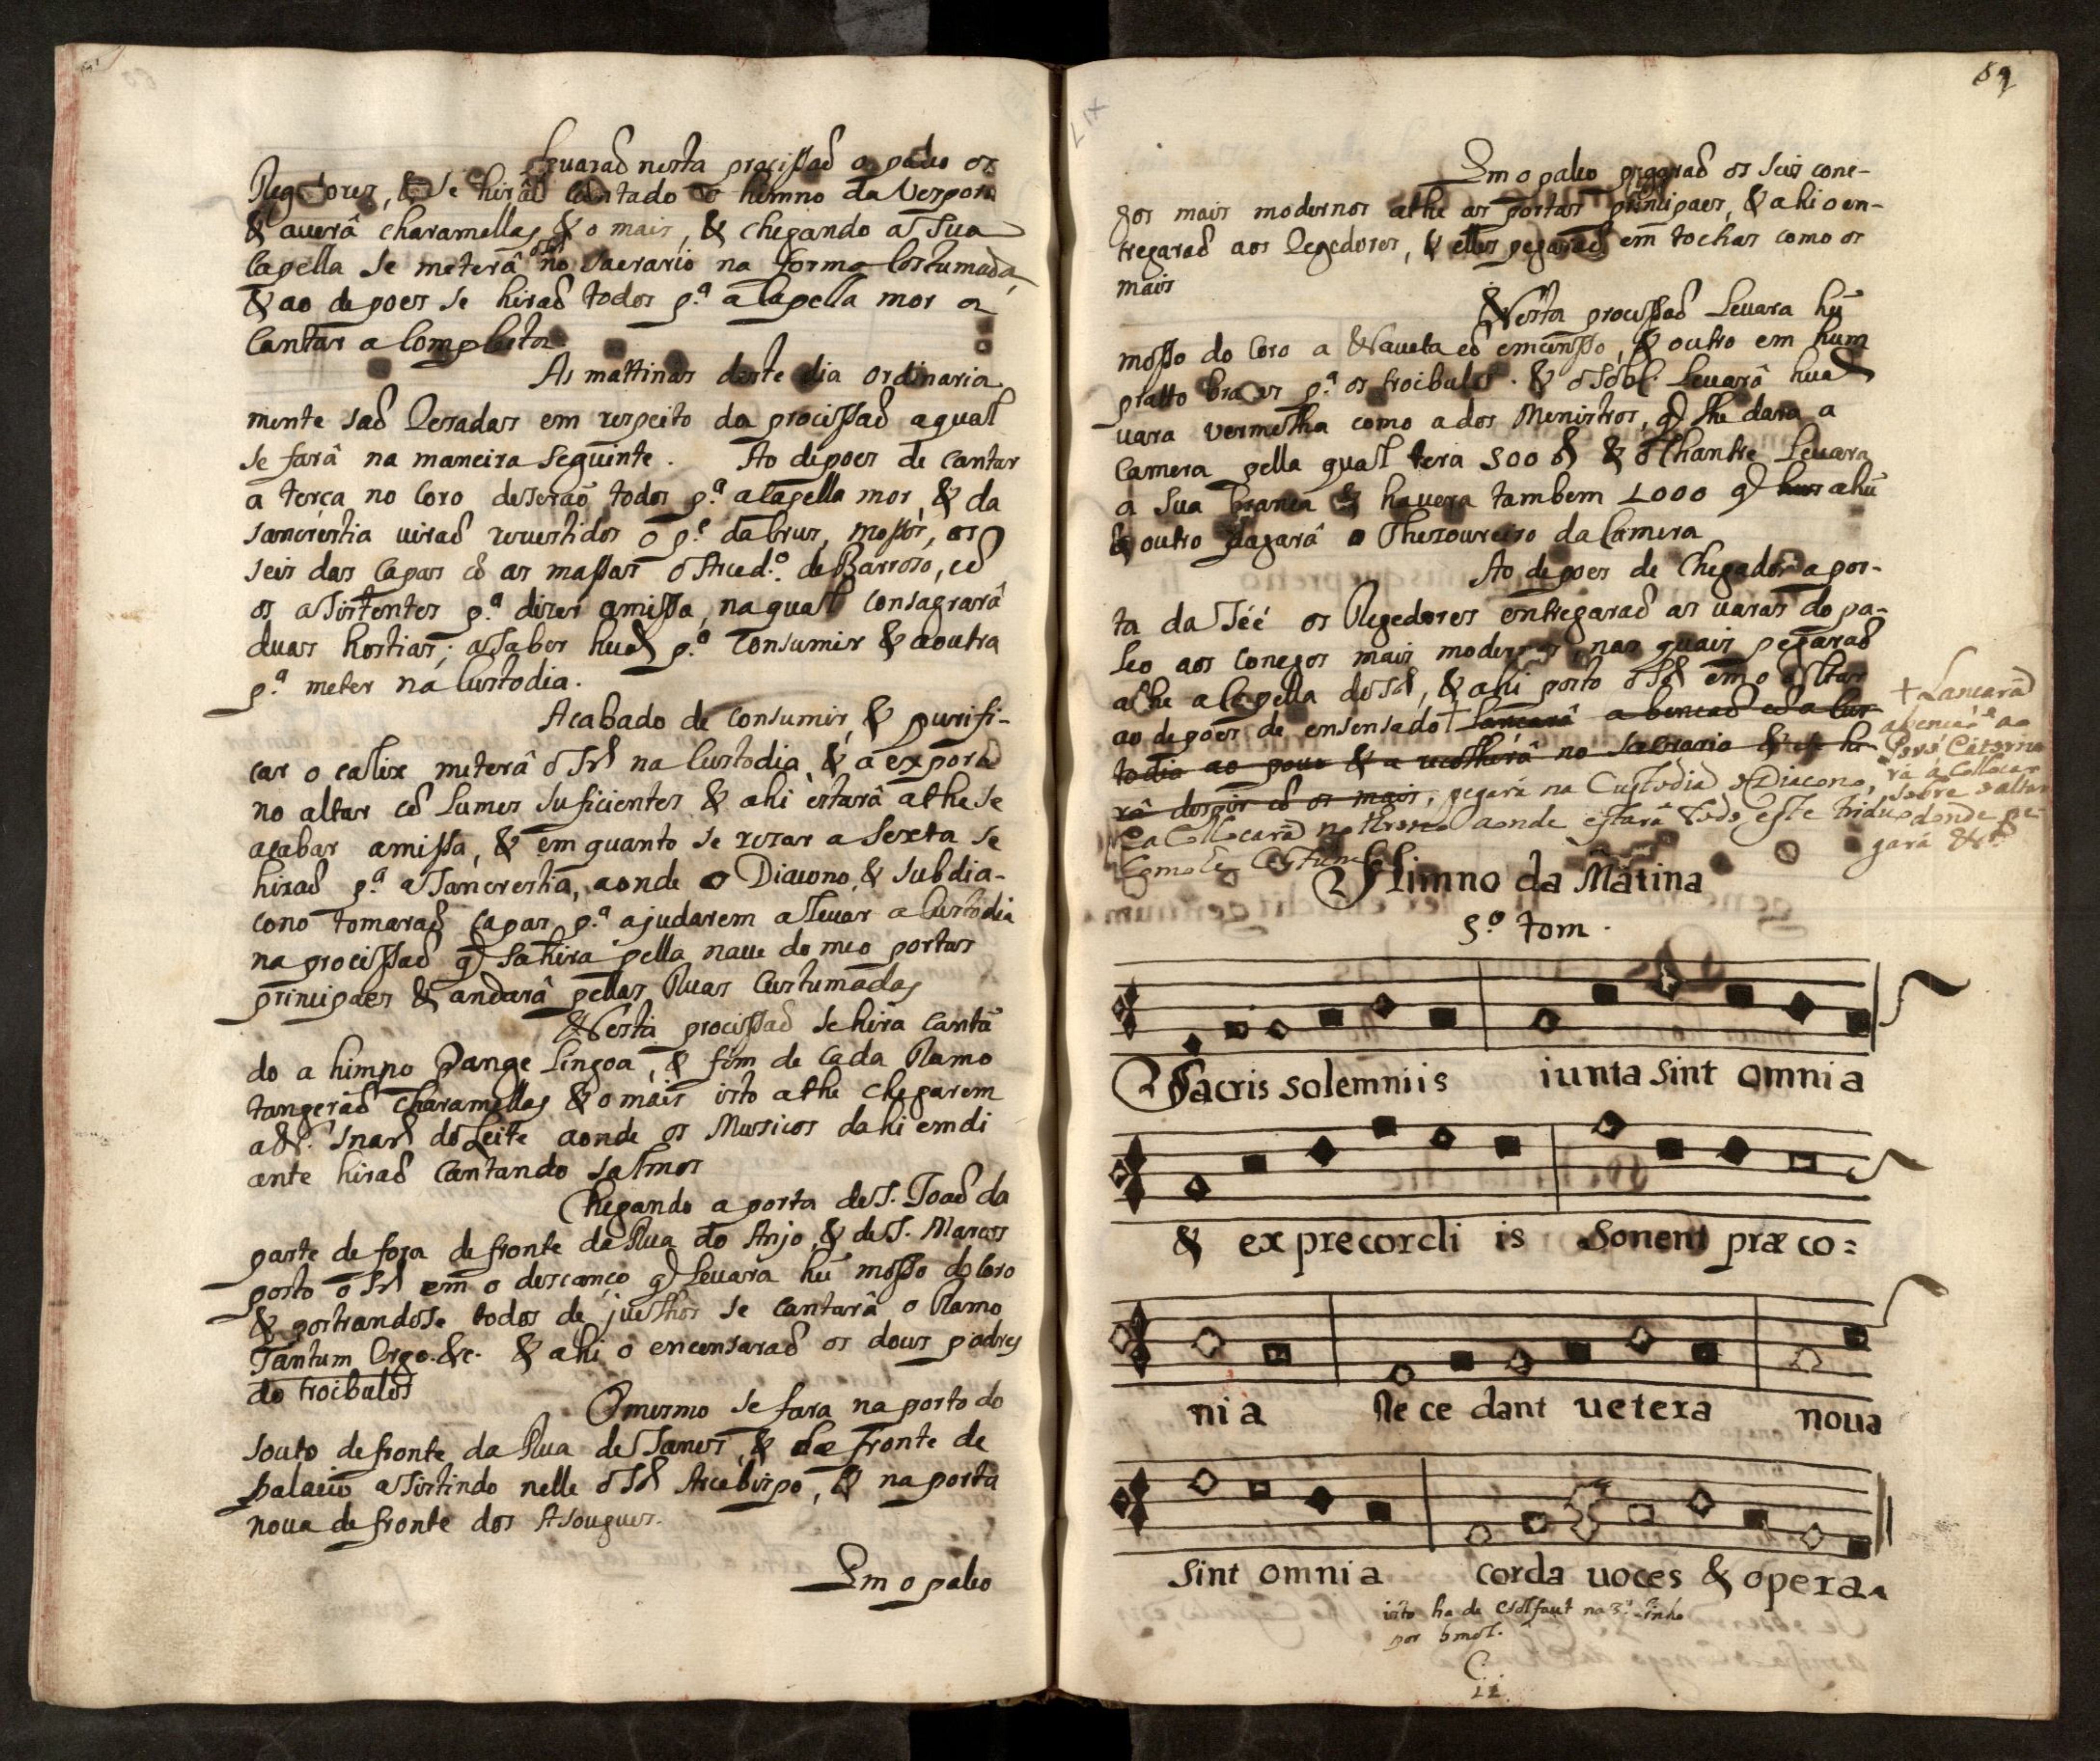 Leuaraõ nesta procissaõ o paleo os
Regedores, & se hiraõ Cantado o himno da Vespora
& auerâ charamellas & o mais, & chegando a Sua
Capella se meterâ no Sacrario na forma Costumada,
& ao depoes se hiraõ todos p.ª a Capella mor a
Cantar a Completa.
As mattinas deste dia ordinaria
mente saõ Resadas em respeito da procissaõ a qual
se farâ na maneira seguinte. Ao depoes de cantar
a terça no Coro deseraõ todos p.ª a Capella mor, & da
Sancrestia uiraõ reuestidos o p.e da Crus, mossos, os
seis das Capas cõ as massas o Arced.º de Barroso, cõ
os asistentes p.ª dizer a missa, na qual consagrarâ
duas hostias; a saber huã p.ª Consumir & a outra
p.ª meter na Custodia.
Acabado de consumir, & purifi-
car o calix meterâ o Sr. na Custodia, & a exporâ
no altar cõ lumes suficientes & ahi estarâ athe se
acabar a missa, & em quanto se rezar a Sexta se
hiraõ p.ª a Sancrestia, aonde o Diacono, & Subdia-
cono tomaraõ Capas p.ª ajudarem a leuar a Custodia
na procissaõ q̃ sahira pella naue do meo portas
principaes & andarâ pellas Ruas Custumadas
Nesta procissaõ se hira cantã
do a himno Pange lingoa, & fim de cada Ramo
tangeraõ charamellas & o mais isto athe chegarem
a N. Snar.ª do Leite aonde os Musicos dahi em di
ante hiraõ Cantando salmos
Chegando a porta de S. Joaõ da
parte de fora defronte da Rua do Anjo, & de S. Marcos
posto o Sr. em o descanço q̃ leuara hũ mosso do Coro
& postrandose todos de juelhos se cantarâ o Ramo
Tantum Ergo. &c. & ahi o encensaraõ os dous padres
do troibulos
O mesmo se fara na porta do
souto defronte da Rua de Janes, & de fronte de
palacio asistindo nelle o Sr. Arcebispo, & na porta
noua defronte dos Asougues.
Em o paleo
59
Em o paleo pegaraõ os seis cone-
gos mais modernos athe as portas principaes, & ahi o en-
tregaraõ aos Regedores, & elles pegaraõ em tochas como os
mais
Nesta procissaõ Leuara hũ
mosso do Coro a Naueta cõ emcensso, & outro em hum
pratto brazas p.ª os troibulos. & o Sobch. Leuarâ huã
uara vermelha como a dos Menistros, q̃ lhe dara a
Camera pella qual tera 500 & o Chantre Leuara
a Sua branca & hauera tambem 1000 q̃ hus a hũ
& outro pagarâ o Thesoureiro da Camera
Ao depoes de chegados a por-
ta da Séé os Regedores entregaraõ as uaras do pa-
leo aos conegos mais modernos nas quais pegaraõ
athe a Capella do Sr., & ahi posto o Sr. em o Altar
ao depoes de ensensado + Lançarâ a bençaõ cõ a Cus-
todia ao pouo & a recolherâ no Sacrario & se hi-
râ despir cõ os mais, pegará na Custodia o Diacono,
& a Collocará no throno aonde estará todo este triduo
Como he Custume
+ Lançarâ
a bençaõ ao
Povo, e tornará
rá a collocar
sobre o altar
donde pe-
gará &c.
Himno da Mâtina
5.º tom.
Sacris solemniis iunta sint omnia
& ex precordi is Sonent præ co=
nia Re ce dant uetera noua
sint omnia corda uoces & opera.
isto ha de Csolfaut na 3.ª linha
por bmol.
C
ii